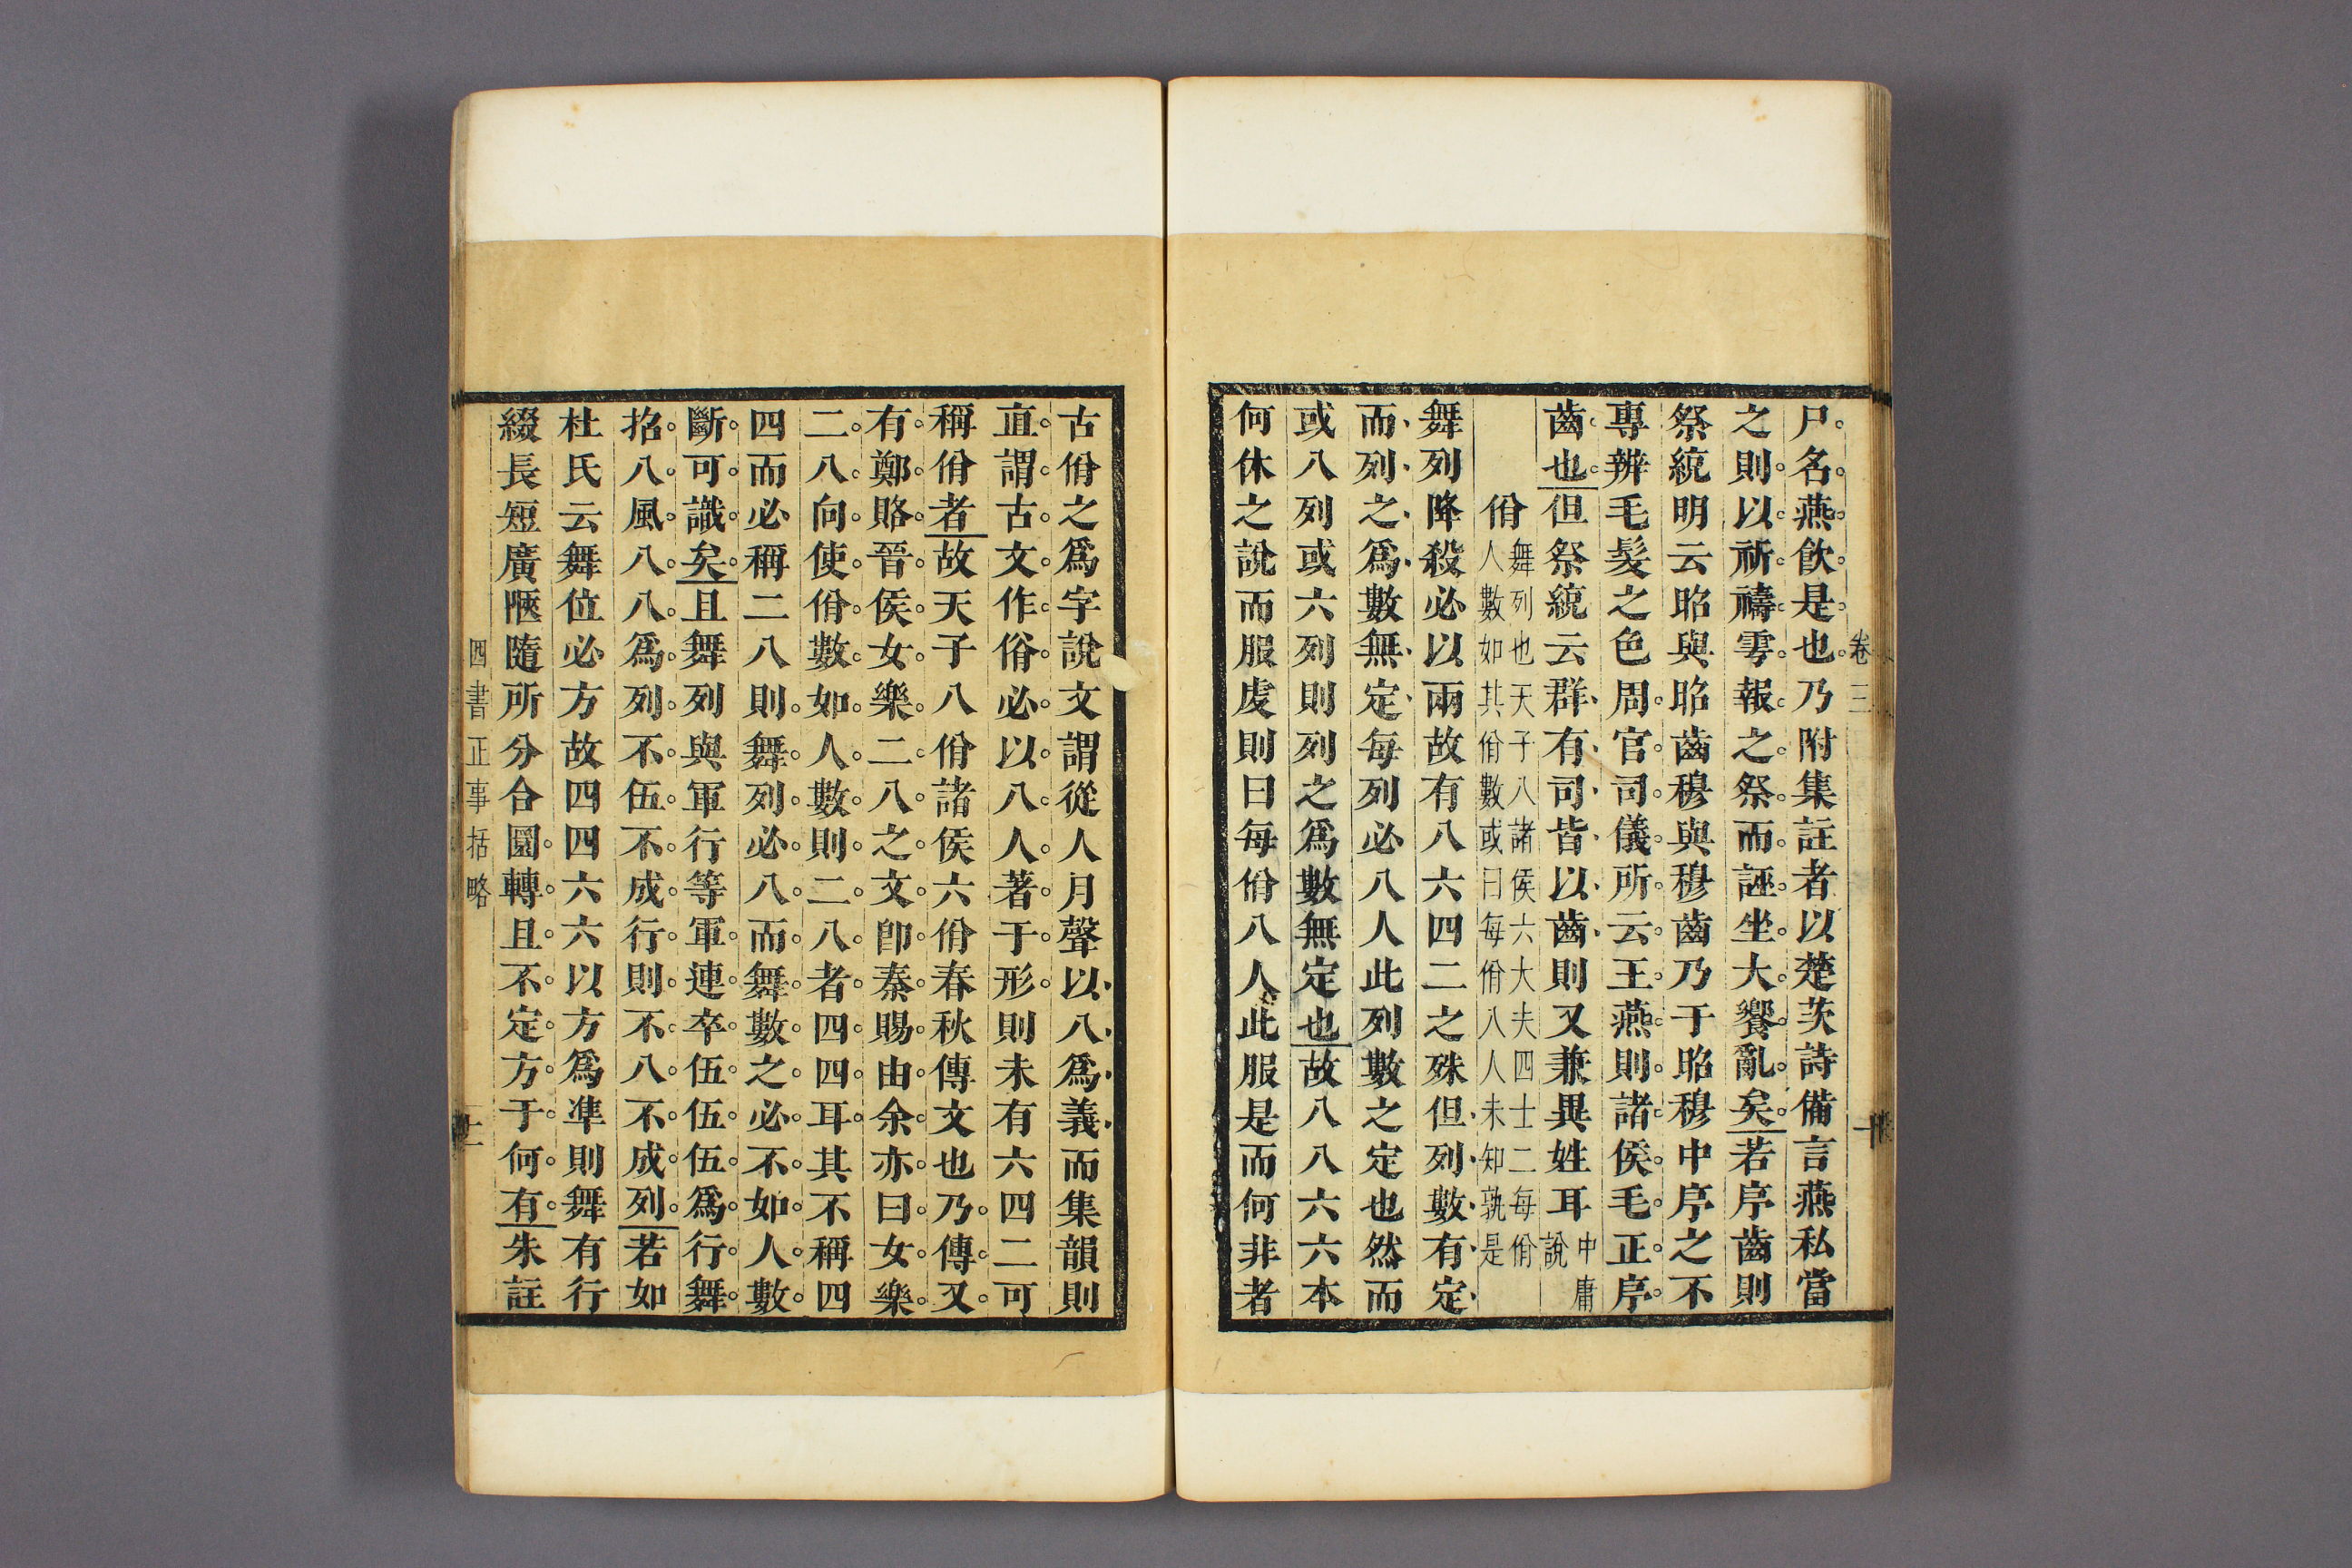 卷三
十
尸名燕飲是也乃附集註者以楚茨詩備言燕私當
之則以祈禱雩報之祭而誣坐大饗亂矣若序齒則
祭統明云昭與昭齒穆與穆齒乃于昭穆中序之不
專辨毛髮之色周官司儀所云王燕則諸侯毛正序
齒也但祭統云群有司皆以齒則又兼異姓耳中庸說
佾舞列也天子八諸侯六大夫四士二每佾
人數如其佾數或曰每佾八人未知孰是
舞列降殺必以兩故有八六四二之殊但列數有定
而列之爲數無定每列必八人此列數之定也然而
或八列或六列則列之爲數無定也故八八六六本
何休之說而服虔則曰每佾八人此服是而何非者
古佾之爲字說文謂從人⺼聲以八爲義而集韻則
直謂古文作㑶必以八人著于形則未有六四二可
稱佾者故天子八佾諸侯六佾春秋傳文也乃傳又
有鄭賂晉侯女樂二八之文卽秦賜由余亦曰女樂
二八向使佾數如人數則二八者四四耳其不稱四
四而必稱二八則舞列必八而舞數之必不如人數
斷可識矣且舞列與軍行等軍連卒伍伍伍爲行舞
招八風八八爲列不伍不成行則不八不成列若如
杜氏云舞位必方故四四六六以方爲準則舞有行
綴長短廣陿隨所分合圜轉且不定方于何有朱註
四書正事括略
十一